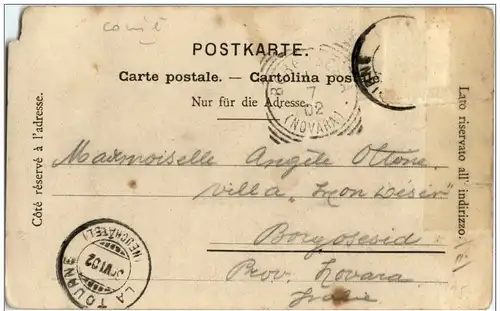 POSTKARTE.
Carte postale. — Cartolina postale
Nur für die Adresse.
Côté réservé à l'adresse.
Lato riservato all' indirizzo.
7
02
(NOVARA)
Mademoiselle Angèle Ottone
Villa "Mon Désir"
Borgosesia
Prov. Novara
Italie
LA TOURNE
VI.02
(NEUCHÂTEL)